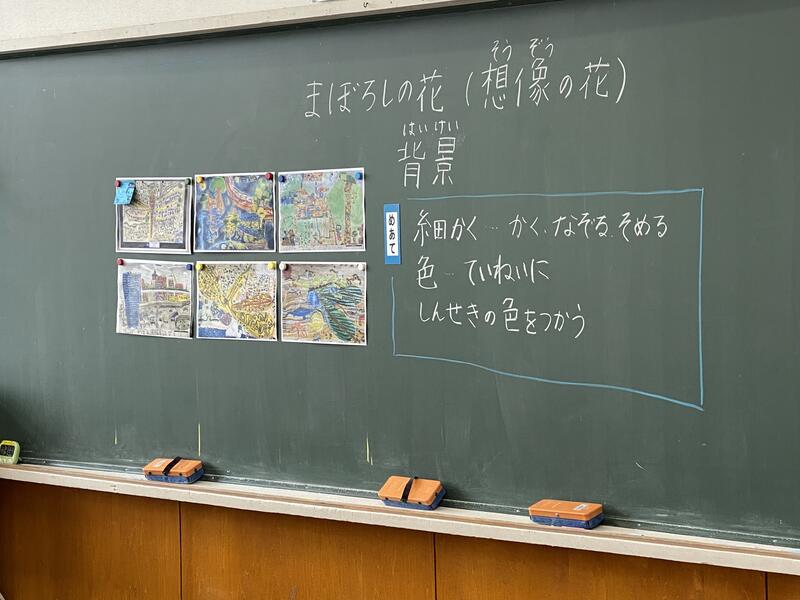 そう ぞう
まぼろしの花(想像の花)
はい けい
背景
めあて
細かく…かく、なぞる、そめる
色…ていねいに
しんせきの色をつかう